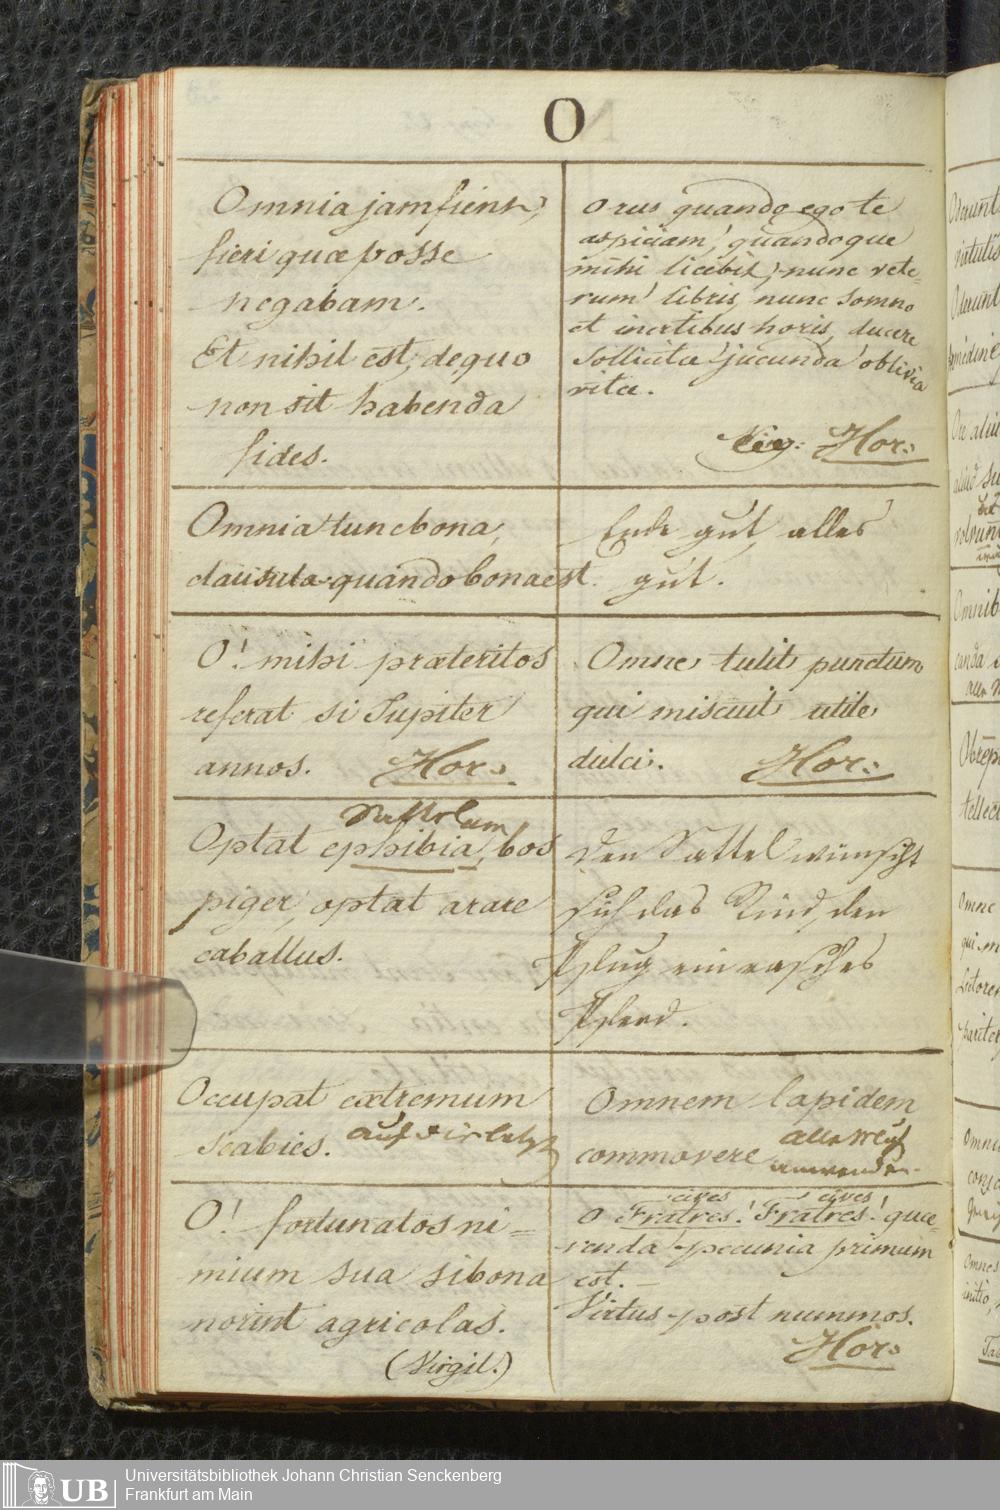 O
Omnia jam fient,
fieri quæ posse
negabam.
Et nihil est, de quo
non sit habenda
fides.
O rus quando ego te
aspiciam! quandoque
mihi licebit, nunc vete-
rum libris, nunc somno
et inertibus horis, ducere
sollicitæ jucunda oblivia
vitæ.
Virg: Hor:
Omnia tunc bona,
clausula quando bona est.
Ende gut, alles
gut.
O! mihi præteritos
referat si Jupiter
annos. Hor:
Omne tulit punctum
qui miscuit utile
dulci. Hor:
Optat ephibia, bos
piger, optat arare
caballus.
Den Sattel wünscht
sich das Rind, den
Pflug ein rasches
Pferd.
Occupat extremum
scabies. auf die letzt
Omnem lapidem
commovere allen Fleiß
anwenden.
O! fortunatos ni=
mium sua si bona
norint agricolas.
(Virgil.)
cives cives
O Fratres! Fratres! quæ-
renda pecunia primum
est. –
Virtus post nummos.
Hor:
UB
Universitätsbibliothek Johann Christian Senckenberg
Frankfurt am Main